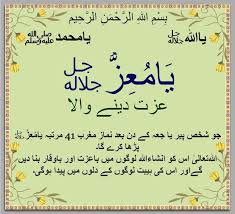 بِسْمِ اللهِ الرَّحْمٰنِ الرَّحِيْمِ
یااللہ جل جلالہ یامحمد ﷺ
یَامُعِزُّ جل جلالہ
عزت دینے والا
جو شخص پیر یا جمعہ کے دن بعد نماز مغرب 41 مرتبہ یامُعِزُّ
پڑھا کرے گا۔
اللہ تعالیٰ اس کو انشاءاللہ لوگوں میں باعزت اور باوقار بنا دیں
گے اور اس کی ہیبت لوگوں کے دلوں میں پیدا ہوگی۔